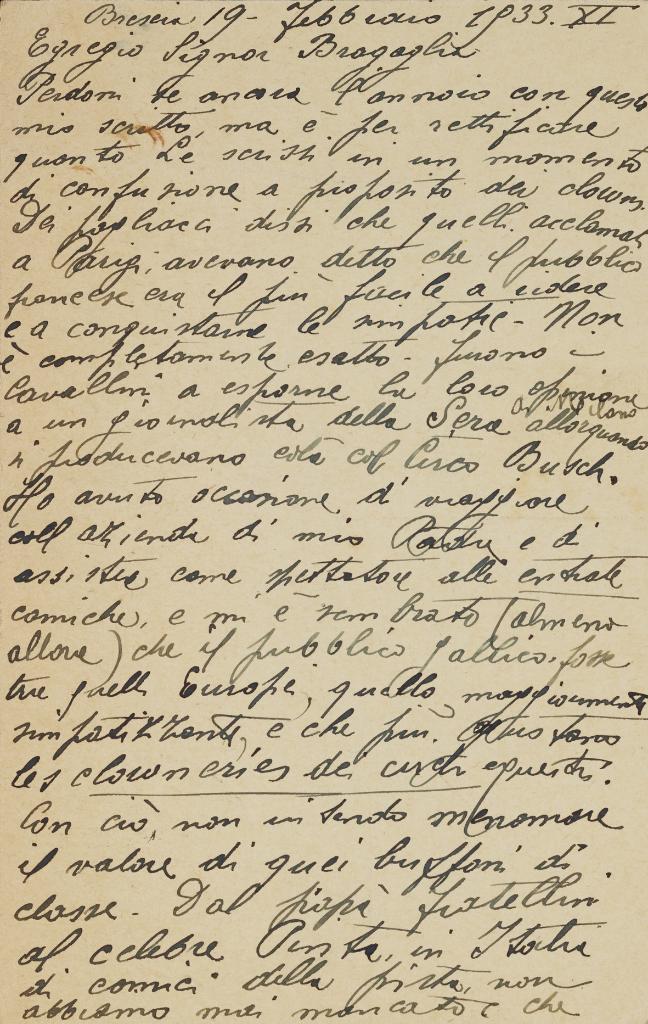 Brescia 19 - Febbraio 1933. XI
Egregio Signor Bragaglia
Perdoni se ancora l'annoio con questo
mio scritto, ma è per rettificare
quanto Le scrissi in un momento
di confusione a proposito dei clowns.
Dei pagliacci dissi che quelli acclamati
a Parigi, avevano detto che il pubblico
francese era il più facile a ridere
e a conquistarne le simpatie - Non
è completamente esatto - Furono i
Cavallini a esporne la loro opinione
a un giornalista della Sera di Milano allorquando
si producevano colà col Circo Busch.
Ho avuto occasione di viaggiare
coll azienda di mio Padre e di
assistere come spettatore alle entrate
comiche, e mi è sembrato (almeno
allora) che il pubblico gallico, fosse
tra quelli Europei, quello maggiormente
simpatizzante, e che più
les clowneries dei circhi equestri.
Con ciò, non intendo menomare
il valore di quei buffoni di
classe - Dal papà fratellini
al celebre in Italia
di comici della pista, non
abbiamo mai mancato e che